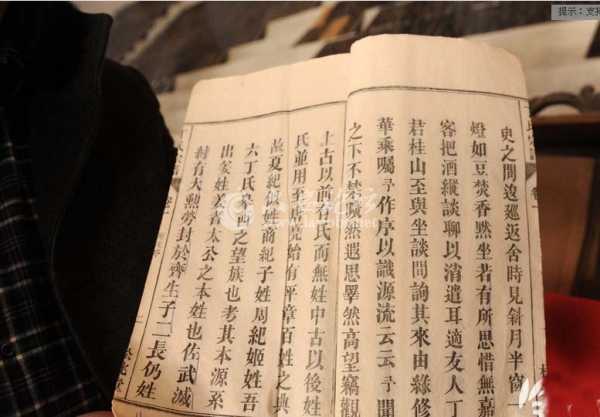 提示：支持
史之間逡廵返舍時見斜月半窗一
燈如豆焚香黙坐若有所思惜無嘉
客把酒縱談聊以消遣耳適友人丁
君桂山至與坐談間詢其來由緣修
華乘囑予作序以識源流云云予聞
之下不禁喟然遐思睪然高望竊觀
上古以前有氏而無姓中古以後姓
氏並用至唐堯始有平章百姓之典
夏紀姒姓商紀子姓周紀姬姓吾
六丁氏 之望族也考其本源系
出姜姓 太公之本姓也佐武滅
紂有大勲勞封於齊生子二長仍姓